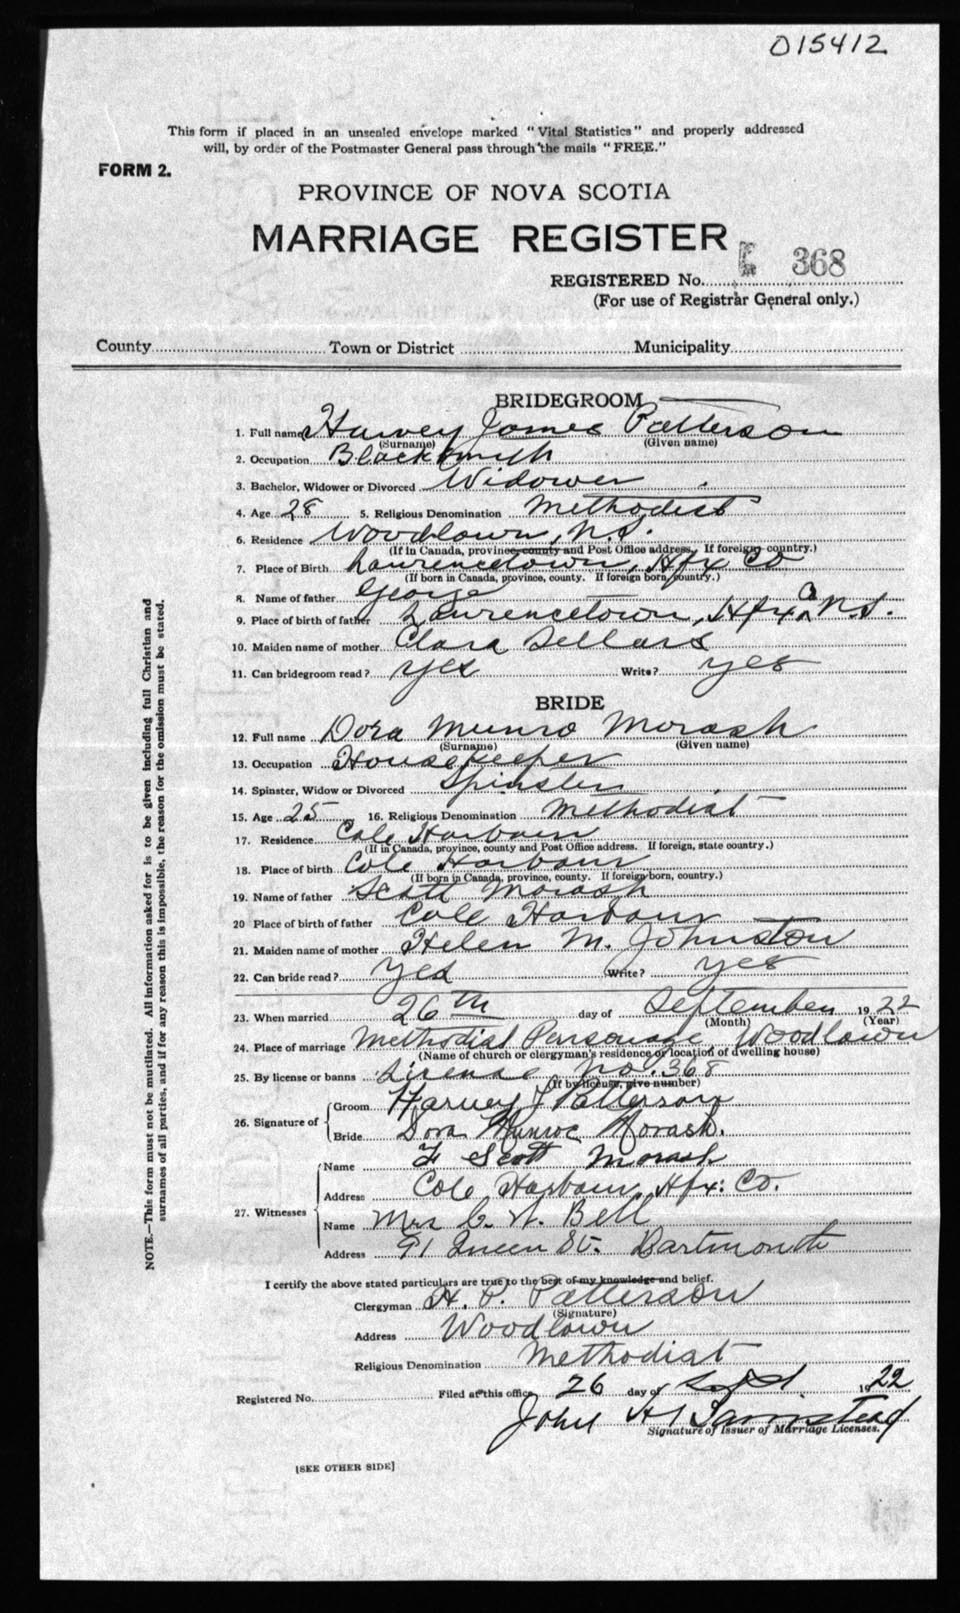 015412
This form if placed in an unsealed envelope marked "Vital Statistics" and properly addressed
will, by order of the Postmaster General pass through the mails "FREE."
FORM 2.
PROVINCE OF NOVA SCOTIA
MARRIAGE REGISTER
368
REGISTERED No.
(For use of Registrar General only.)
County Town or District Municipality
BRIDEGROOM
1. Full name Harvey James Patterson
(Surname) (Given name)
2. Occupation Blacksmith
3. Bachelor, Widower or Divorced Widower
4. Age 28 5. Religious Denomination Methodist
6. Residence Woodlawn, N.S.
(If in Canada, province, county and Post Office address. If foreign country.)
7. Place of Birth Lawrencetown, Hfx Co
(If born in Canada, province, county. If foreign born, country.)
8. Name of father George
9. Place of birth of father Lawrencetown, Hfx Co N.S.
10. Maiden name of mother Clara Sellars
11. Can bridegroom read? yes Write? yes
BRIDE
12. Full name Dora Munro Morash
(Surname) (Given name)
13. Occupation Housekeeper
14. Spinster, Widow or Divorced Spinster
15. Age 25 16. Religious Denomination Methodist
17. Residence Cole Harbour
(If in Canada, province, county and Post Office address. If foreign, state country.)
18. Place of birth Cole Harbour
(If born in Canada, province, county. If foreign born, country.)
19. Name of father Scott Morash
20 Place of birth of father Cole Harbour
21. Maiden name of mother Helen M. Johnston
22. Can bride read? yes Write? yes
23. When married 26th day of September 1922
(Month) (Year)
24. Place of marriage Methodist Parsonage, Woodlawn
(Name of church or clergyman's residence or location of dwelling house)
25. By license or banns License No. 368
(If by license, give number)
26. Signature of Groom Harvey J Patterson
Bride Dora Munroe Morash.
27. Witnesses Name F Scott Morash
Address Cole Harbour, Hfx: Co.
Name Mrs C. W. Bell
Address 91 Queen St. Dartmouth
I certify the above stated particulars are true to the best of my knowledge and belief.
Clergyman H. P. Patterson
(Signature)
Address Woodlawn
Religious Denomination Methodist
Registered No. Filed at this office 26 day of Sept. 1922
John H
Signature of Issuer of Marriage Licenses.
[SEE OTHER SIDE]
NOTE.—This form must not be mutilated. All information asked for is to be given including full Christian and
surnames of all parties, and if for any reason this is impossible, the reason for the omission must be stated.